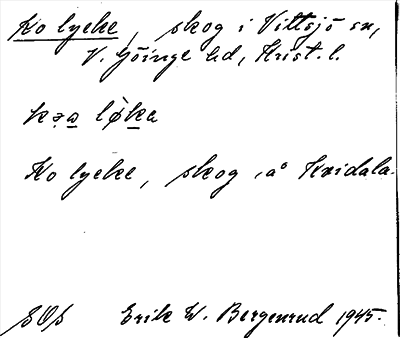 Ko lycke, skog i Vittsjö sn,
V. Göinge hd, Krist. l.
kəa lø̀ka
Ko lycke, skog, å Hridala.
SOS Erik W. Bergenrud 1945.